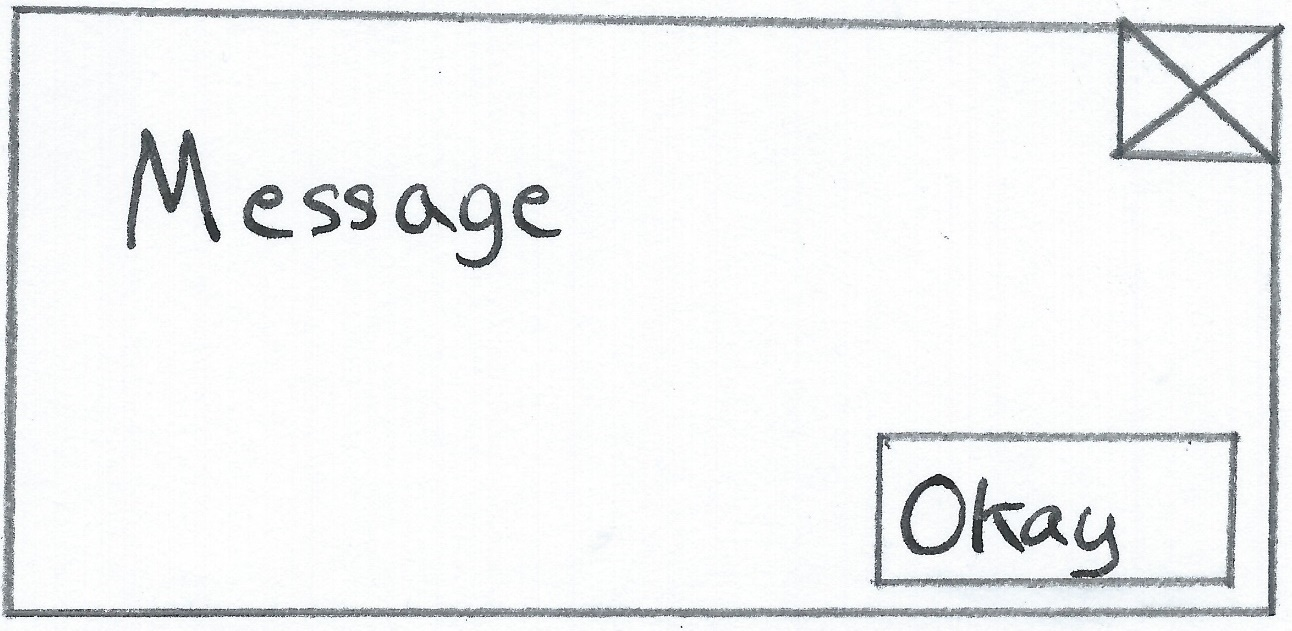 Message
Okay